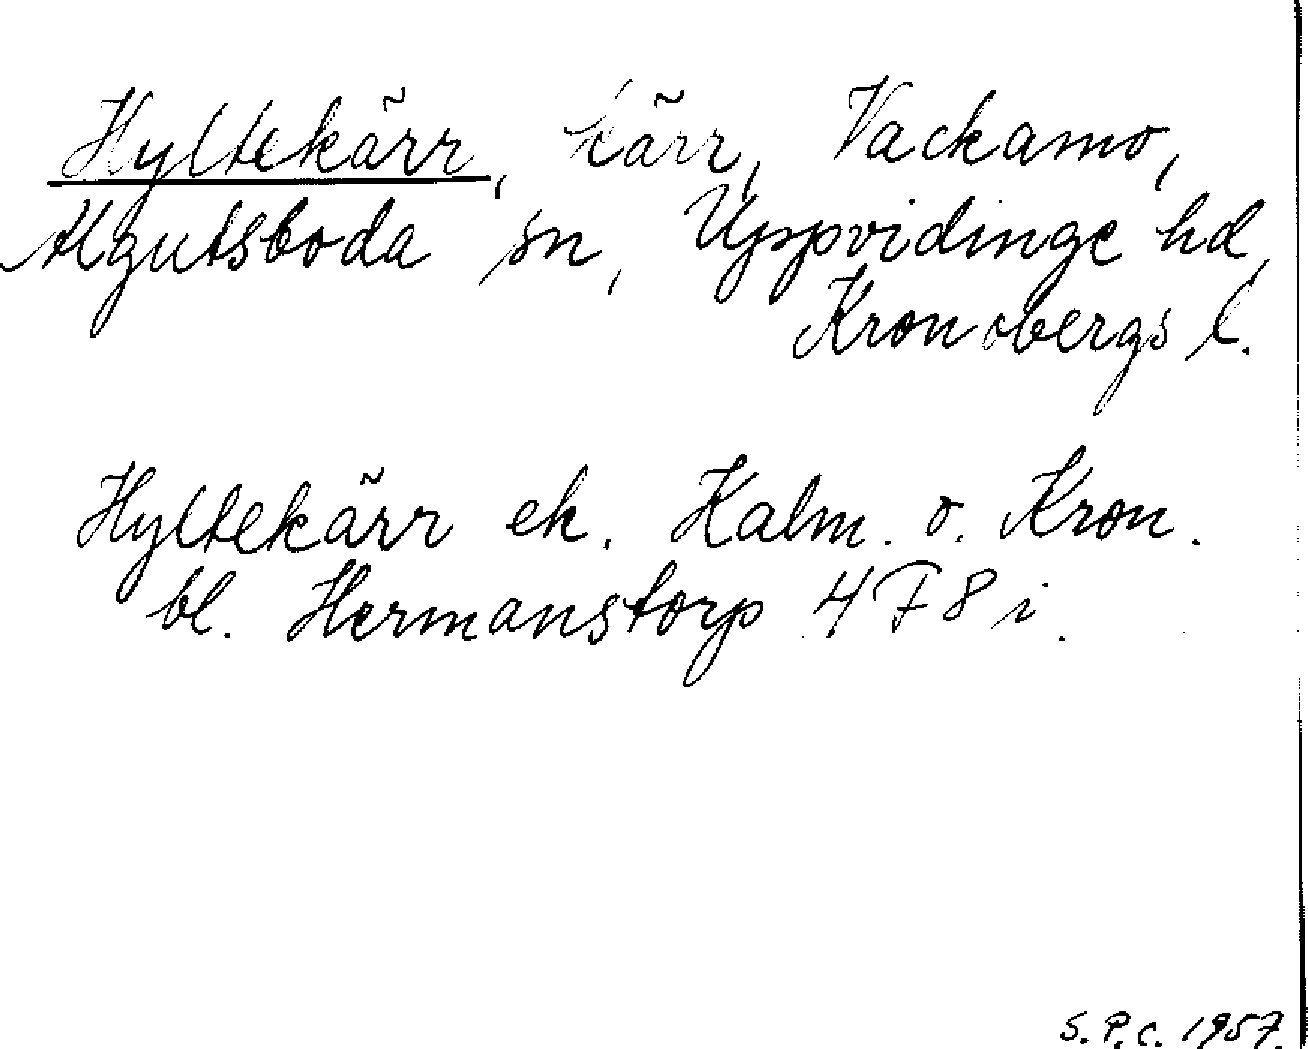 Hyltekärr, kärr, Vackamo,
Algutsboda sn, Uppvidinge hd,
Kronobergs l.
Hyltekärr ek. Kalm. o. Kron.
bl. Hermanstorp 4 F 8 i.
S.P.C. 1957.